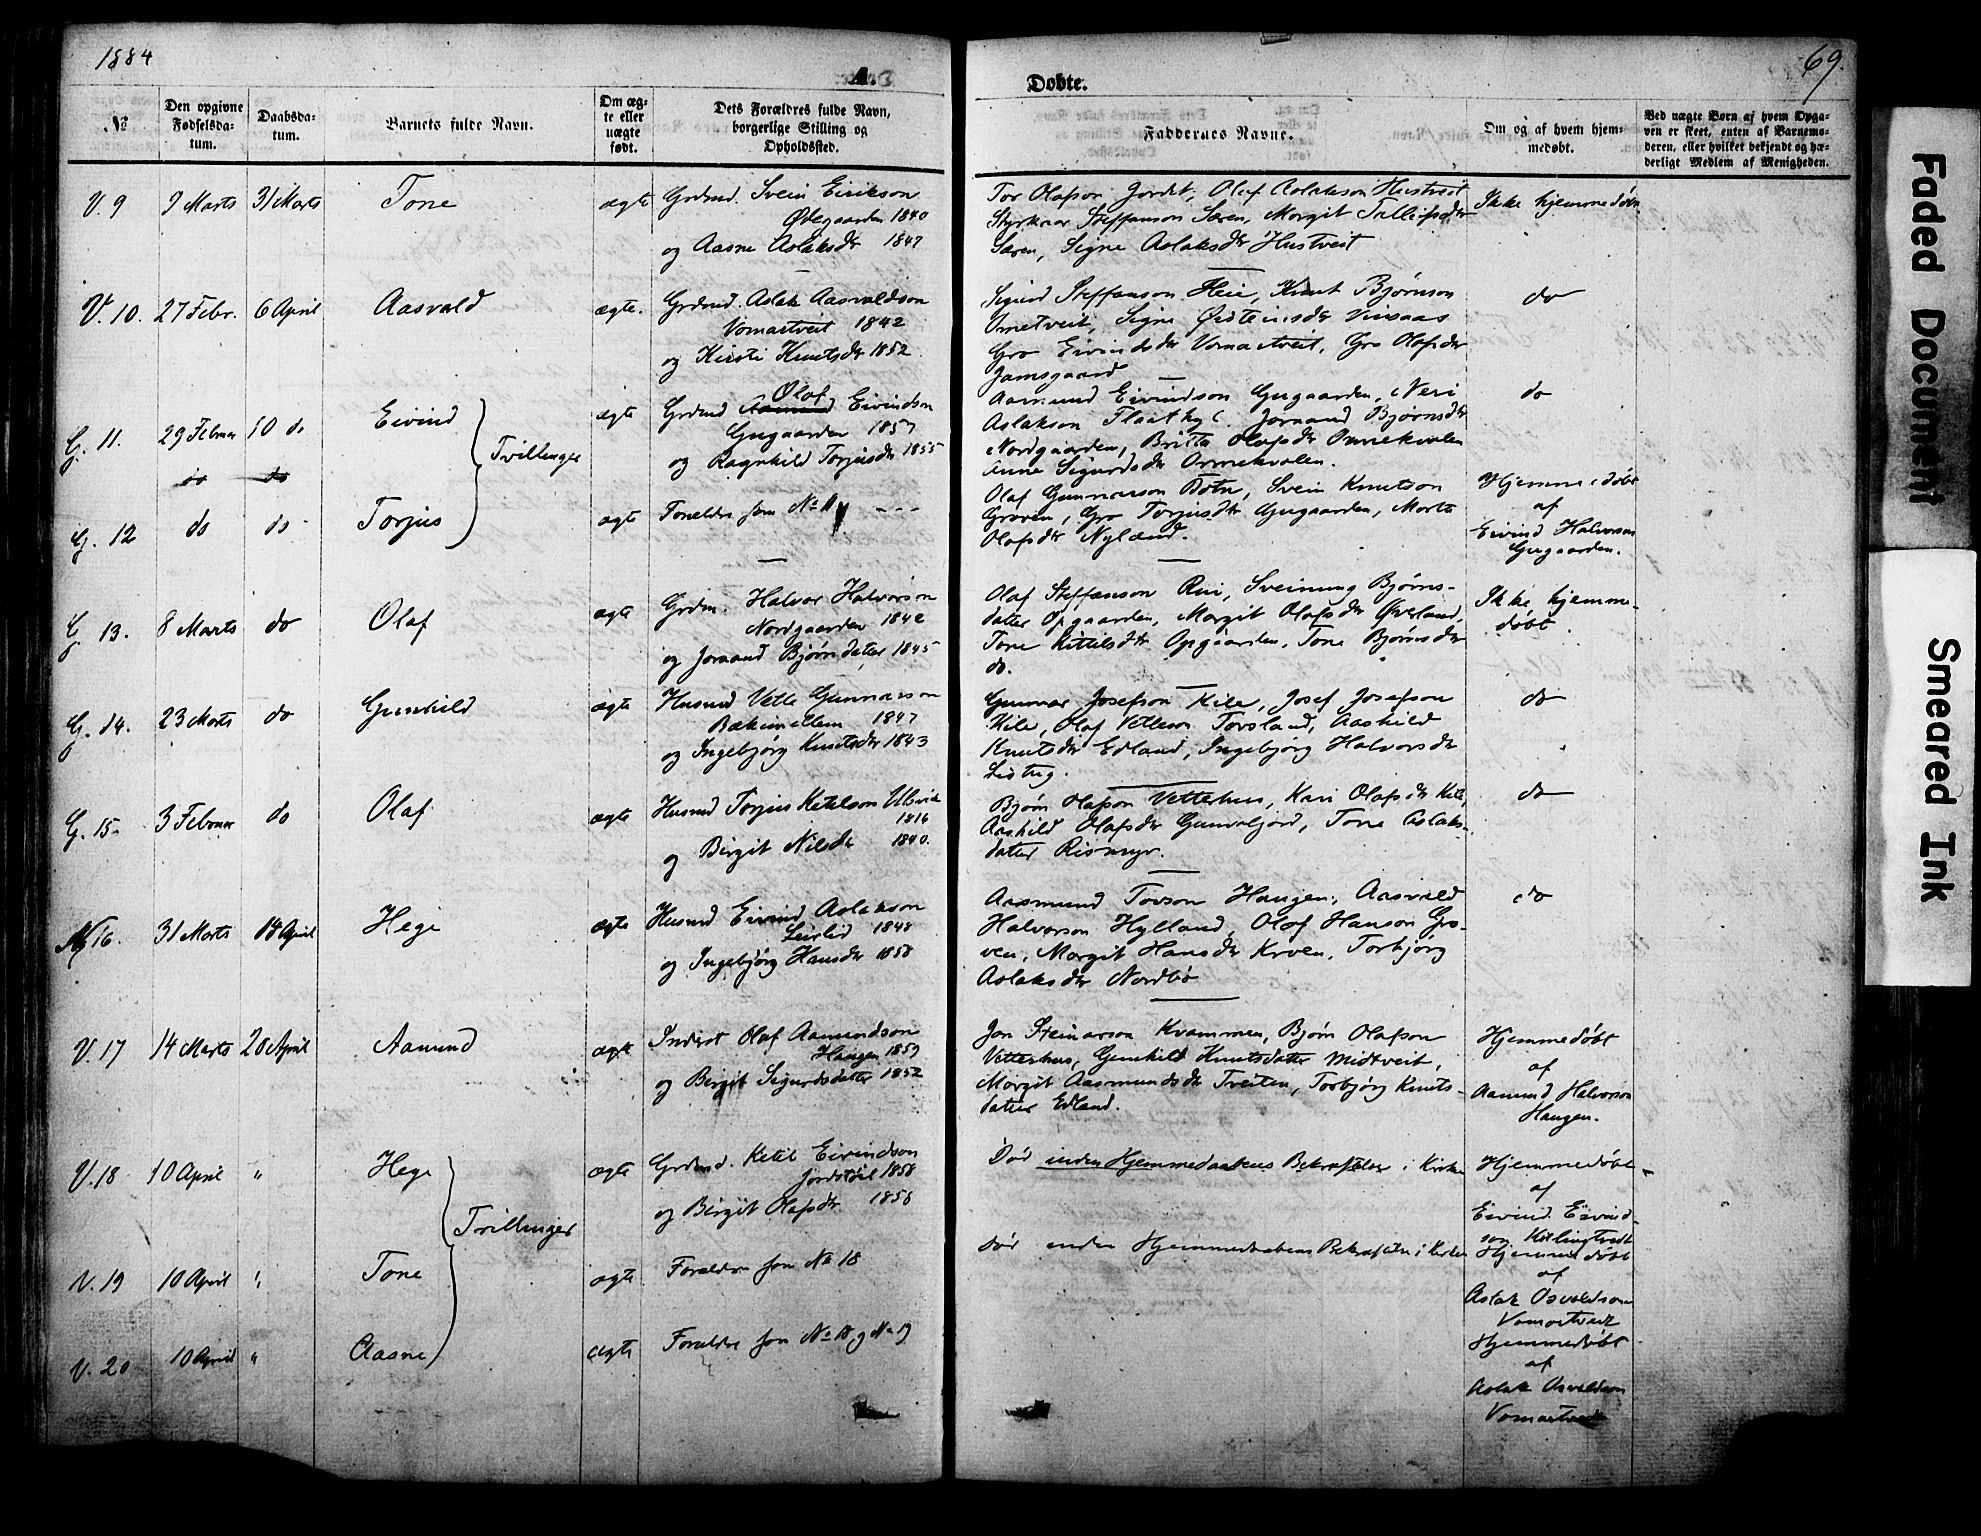 1884
A.
Døbte.
69.
№
Den opgivne Fødselsdatum.
Daabsdatum.
Barnets fulde Navn.
Om ægte eller uægte født.
Dets Forældres fulde Navn, borgerlige Stilling og Opholdssted.
Faddernes Navne.
Om og af hvem hjemmedøbt.
Ved uægte Børn af hvem Opgaven er skeet, enten af Barnemoderen, eller hvilket bekjendt og hæderligt Medlem af Menigheden.
V. 9 9 Marts 31 Marts Tone ægte Grdmd. Svein Eirikson
Øigaarden 1840
og Aasne Aslaksdr 1847
Tor Olafson Jordet, Olaf Aslakson Hustveit
Styrkaar Steffanson Særen, Margit Tallefsdr
Særen, Signe Aslaksdr Hustveit
Ikke hjemmedøbt
V. 10. 27 Febr. 6 April Aasvald ægte. Grdmd. Aslak Aasvaldson
Vomartveit 1842
og Kirsti Knutsdr 1852
Sigurd Steffanson Heie, Knut Bjørnson
Ormetveit, Signe Øisteinsdr Vinsaas
Gro Eivindsdr Vomartveit, Gro Olafsdr
Jamsgaard
do
G. 11. 29 Februar 10 do Eivind ægte Grdmd Olaf Eivindson
Gugaarden 1857
og Ragnhild Torjusdr 1855
Tvillinger
Aamund Eivindson Gugaarden, Neri
Aslakson Flaathyl Joraand Bjørnsdr
Nordgaarden, Britta Olafsdr Ormekvalen
Anne Sigurdsdr Ormekvalen.
do
do do
G. 12 do do Torjus ægte Forældre som No 11 - - -
Olaf Gunnarson Botn, Svein Knutson
Groven, Gro Torjusdr Gugaarden, Marte
Olafsdr Nyland.
Hjemmedøbt
af
Eivind Halvorson
Gugaarden.
G. 13. 8 Marts do Olaf ægte Grdm. Halvor Halvorson
Nordgaarden 1842
og Joraand Bjørnsdatter 1845
Olaf Steffanson Rui, Sveinung Bjørns-
datter Opgaarden, Margit Olafsdr Øverland,
Tone Kittilsdtr Opgaarden, Tone Bjørnsdr
do.
Ikke hjemme-
døbt
G. 14. 23 Marts do Gunhild ægte Husmd Vetle Gunnarson
Bækimellem 1847
og Ingebjørg Knutsdr 1843
Gunnar Josefson Kile, Josef Josefson
Kile, Olaf Vetleson Torsland, Aashild
Knutsdr Edland, Ingebjørg Halvorsdr
Listug.
do
G. 15. 3 Februar do Olaf ægte Husmd Torjus Ketilson Ulsvik
1816
og Birgit Nilsdr 1840.
Bjørn Olafson Vetterhus, Kari Olafsdr Kile,
Aashild Olafsdr Gunvaljord, Tone Aslaks-
datter Rismyr.
do
16. 31 Marts 14 April Hege ægte Husmd Eivind Aslakson
Leirlid 1848
og Ingebjørg Hansdr 1858
Aasmund Tovson Haugen, Aasvald
Halvorson Hylland, Olaf Hanson Gro-
ven, Margit Hansdr Kroen, Torbjørg
Aslaksdr Nordbø
do
V. 17 14 Marts 20 April Aamund ægte Inderst Olaf Aamundson
Haugen 1859
og Birgit Sigurdsdatter 1852
Jon Steinarson Kvammen, Bjørn Olafson
Vetterhus, Gunhild Knutsdatter Midtveit,
Margit Aasmundsdr Tveiten, Torbjørg Knuts-
datter Edland.
Hjemmedøbt
af
Aamund Halvorson
Haugen.
V. 18 10 April " Hege ægte Grdmd. Ketil Eivindson
Jordstøil 1858
og Birgit Olafsdr 1858
Tvillinger
Død inden Hjemmedaabens Bekræftelse i Kirken
Hjemmedøbt
af
Eivind Eivind-
son Killingtveit
V. 19 10 April " Tone ægte Forældre som No 18
død inden Hjemmedaabens Bekræftelse i Kirken
Hjemmedøbt
af
Aslak Osvaldson
Vomartveit
V. 20 10 April " Aasne ægte Forældre som No 18, og No 19
Hjemmedøbt
af
Aslak Osvaldson
Vomartveit
Faded Document
Smeared Ink